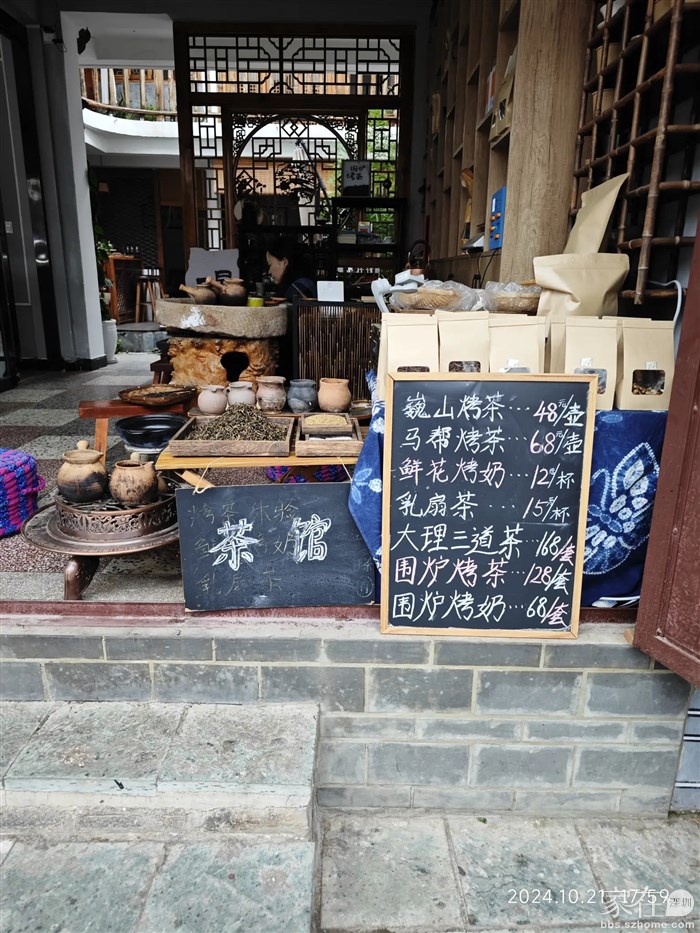 围炉
烤茶
巍山烤茶···48元/壶
马帮烤茶···68元/壶
鲜花烤奶···12元/杯
乳扇茶···15元/杯
大理三道茶···168/套
围炉烤茶···128/套
围炉烤奶···68/套
茶馆
烤茶体验
乳扇茶
2024.10.21 17:59
家在深圳
bbs.szhome.com